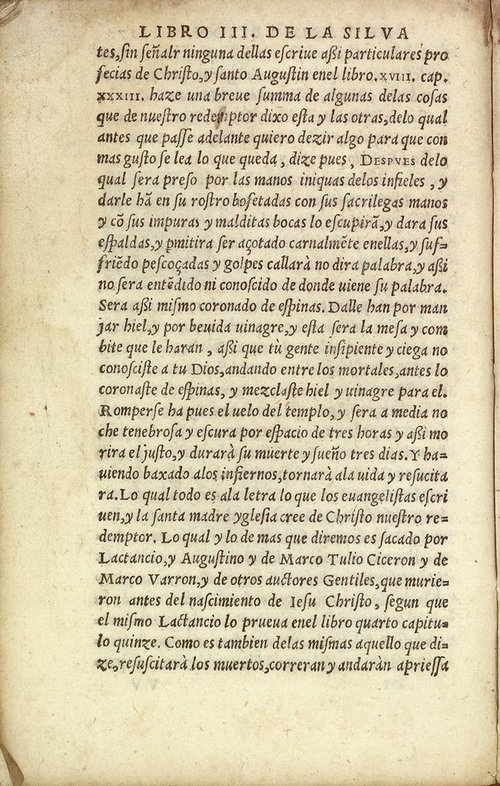 LIBRO III. DE LA SILVA
tes, sin señalr ninguna dellas escriue aßi particulares pro
fecias de Christo, y santo Augustin enel libro. XVIII. cap.
XXXIII. haze una breue summa de algunas delas cosas
que de nuestro redemptor dixo esta y las otras, delo qual
antes que passe adelante quiero dezir algo para que con
mas gusto se lea lo que queda, dize pues, DESPVES delo
qual sera preso por las manos iniquas delos infieles, y
darle hã en su rostro bofetadas con sus sacrilegas manos
y cõ sus impuras y malditas bocas lo escupirã, y dara sus
espaldas, y pmitira ser açotado carnalmẽte enellas, y suf=
friẽdo pescoçadas y golpes callarà no dira palabra, y aßi
no sera entẽdido ni conoscido de donde uiene su palabra.
Sera aßi mismo coronado de espinas. Dalle han por man
jar hiel, y por beuida uinagre, y esta sera la mesa y com
bite que le haran, aßi que tù gente insipiente y ciega no
conosciste a tu Dios, andando entre los mortales, antes lo
coronaste de espinas, y mezclaste hiel y uinagre para el.
Romperse ha pues el uelo del templo, y sera a media no
che tenebrosa y escura por espacio de tres horas y aßi mo
rira el justo, y durarà su muerte y sueño tres dias. Y ha=
uiendo baxado alos infiernos, tornarà ala uida y resucita
ra. Lo qual todo es ala letra lo que los euangelistas escri
uen, y la santa madre yglesia cree de Christo nuestro re=
demptor. Lo qual y lo de mas que diremos es sacado por
Lactancio, y Augustino y de Marco Tulio Ciceron y de
Marco Varron, y de otros auctores Gentiles, que murie=
ron antes del nascimiento de Iesu Christo, segun que
el mismo Lactancio lo prueua enel libro quarto capitu=
lo quinze. Como es tambien delas mismas aquello que di=
ze, resuscitarà los muertos, correran y andaràn apriessa